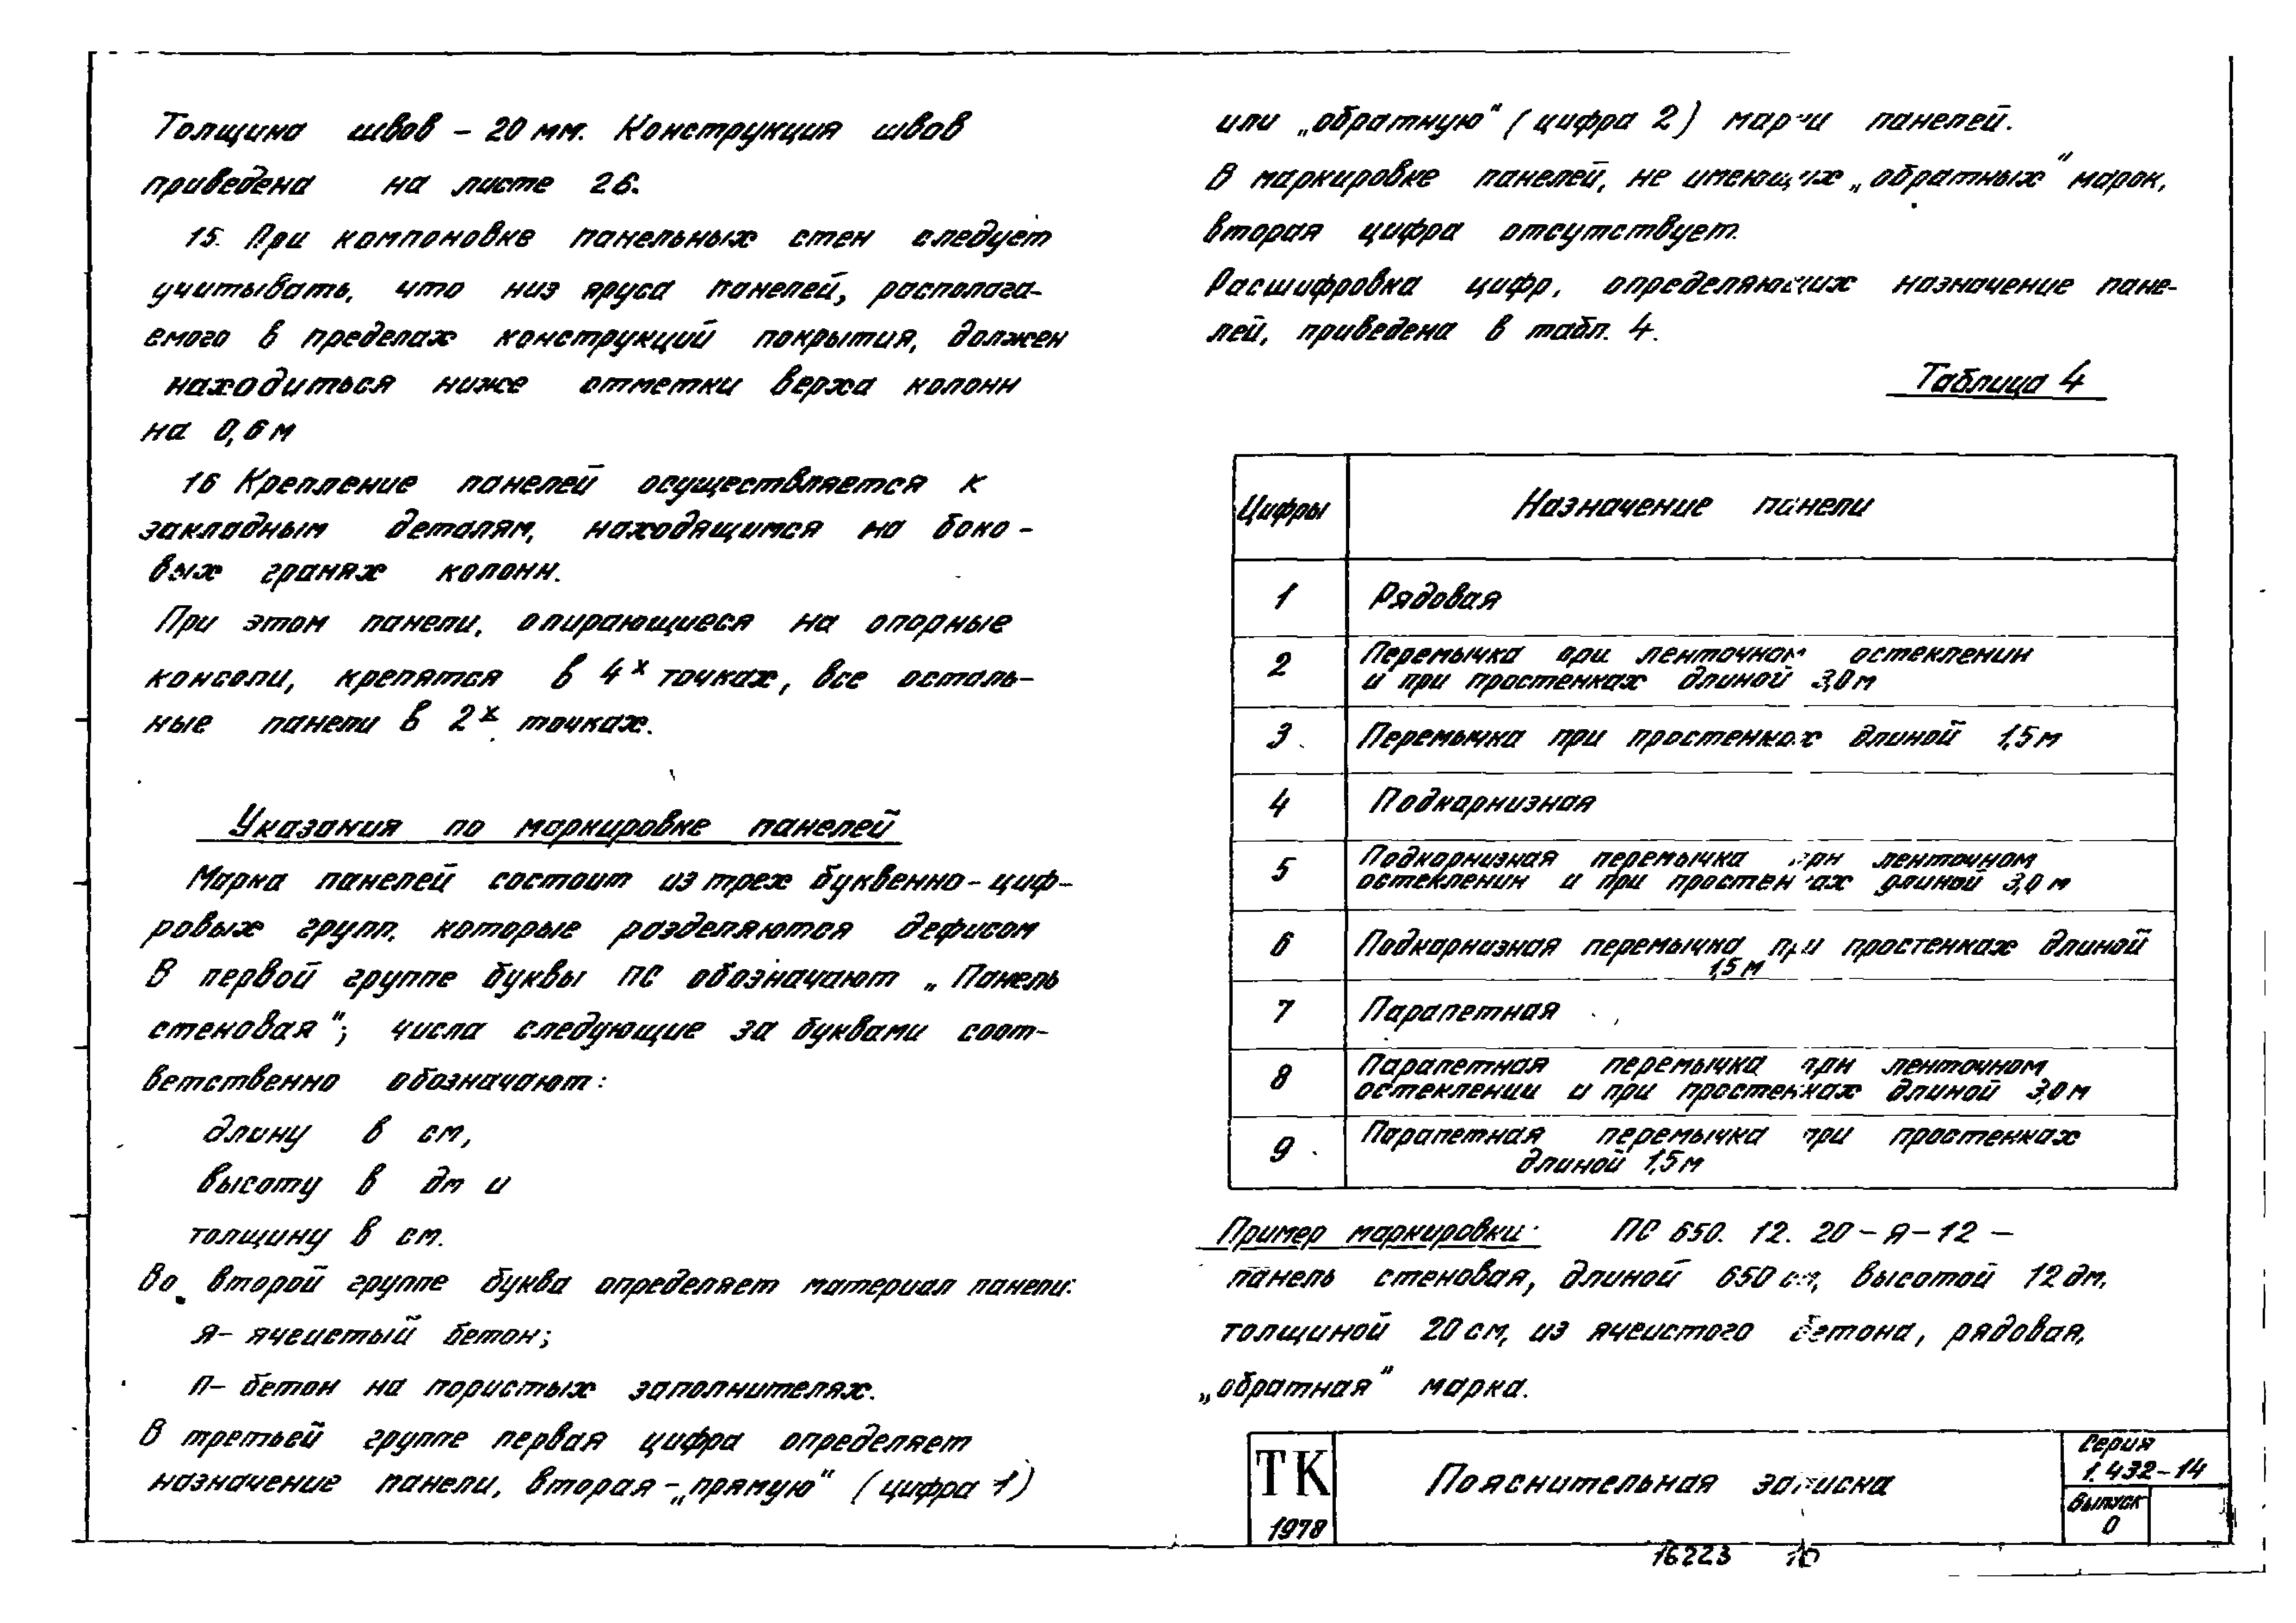 Толщина швов – 20 мм. Конструкция швов
приведена на листе 26.
15. При компоновке панельных стен следует
учитывать, что низ яруса панелей, располага-
емого в пределах конструкций покрытия, должен
находиться ниже отметки верха колонн
на 0,6 м
16 Крепление панелей осуществляется к
закладным деталям, находящимся на боко-
вых гранях колонн.
При этом панели, опирающиеся на опорные
консоли, крепятся в 4х точках, все осталь-
ные панели в 2х точках.
Указания по маркировке панелей
Марка панелей состоит из трех буквенно-циф-
ровых групп, которые разделяются дефисом
В первой группе буквы ПС обозначают „Панель
стеновая"; числа следующие за буквами соот-
ветственно обозначают:
длину в см,
высоту в дм и
толщину в см.
Во второй группе буква определяет материал панели:
Я- ячеистый бетон;
П- бетон на пористых заполнителях.
В третьей группе первая цифра определяет
назначение панели, вторая -„прямую" (цифра 1)
или „обратную" (цифра 2) марки панелей.
В маркировке панелей, не имеющих „обратных" марок,
вторая цифра отсутствует.
Расшифровка цифр, определяющих назначение пане-
лей, приведена в табл. 4.
Таблица 4
Цифры Назначение панели
1 Рядовая
2 Перемычка при ленточном остеклении
и при простенках длиной 3,0 м
3 Перемычка при простенках длиной 1,5 м
4 Подкарнизная
5 Подкарнизная перемычка при ленточном
остеклении и при простенках длиной 3,0 м
6 Подкарнизная перемычка при простенках длиной
1,5 м
7 Парапетная
8 Парапетная перемычка при ленточном
остеклении и при простенках длиной 3,0 м
9 Парапетная перемычка при простенках
длиной 1,5 м
Пример маркировки: ПС 650. 12. 20 – Я – 12 –
панель стеновая, длиной 650 см, высотой 12 дм,
толщиной 20 см, из ячеистого бетона, рядовая,
„обратная" марка.
ТК
1978
Пояснительная записка
Серия
1.432-14
Выпуск
0
16223 10